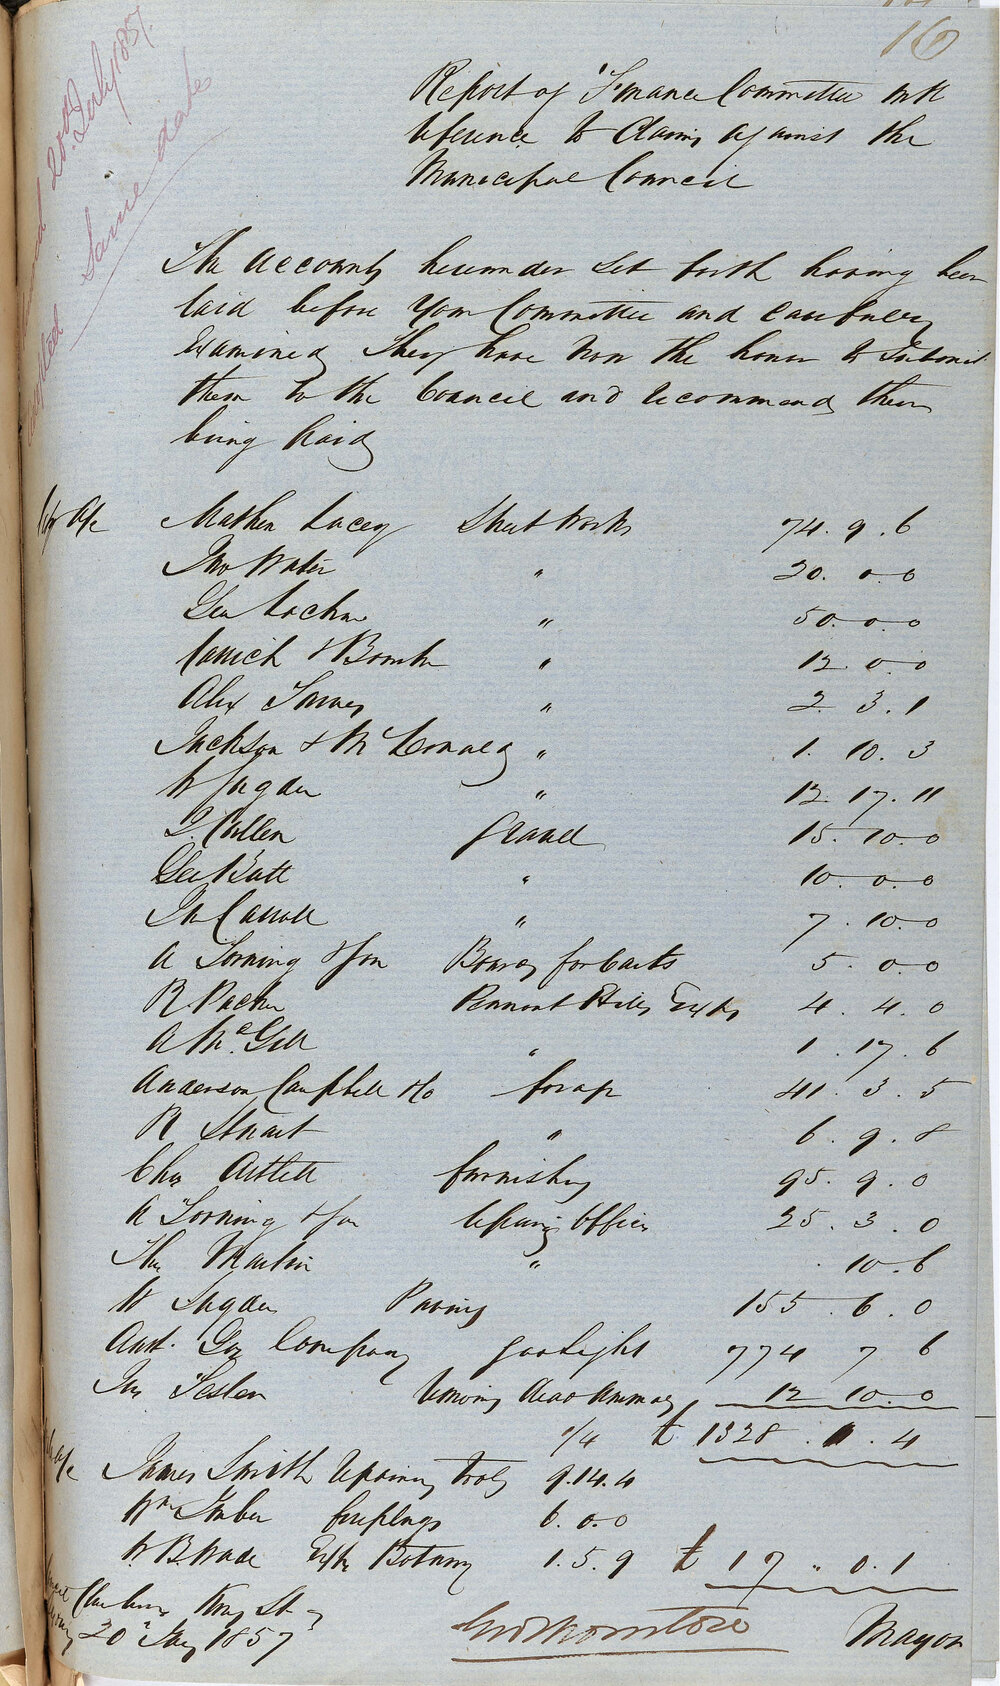 16
20th July 1857.
Same date
Report of Finance Committee with
reference to Claims against the
Municipal Council
The accounts hereunder set forth having been
laid before your Committee and carefully
Examined they have now the honor to Submit
them to the Council and recommend their
being paid
City A/c Mathew Lacey Street Works 74. 9. 6
Jno Water " 20. 0. 0
Geo " 50. 0. 0
& " 12. 0. 0
Alex " 2. 3. 1
Jackson & " 1. 10. 3
W Sugden " 12. 17. 11
J. Cullen Gravel 15. 10. 0
Geo Butt " 10. 0. 0
Jn Carroll " 7. 10. 0
A Torning & Son Boards for Carts 5. 0. 0
R. Packer Pennant Hills Exps 4. 4. 0
A McGill " 1. 17. 6
Anderson Campbell & Co forage 41. 3. 5
R Stuart " 6. 9. 8
Chas furnishing 95. 9. 0
A Torning & Son repairing Offices 25. 3. 0
Martin " 10. 6
W Sugden Paving 155. 6. 0
Aust. Gas Company gas Light 774 7 6
Jas removing dead Animals 12 10. 0
£ 1328. 11. 4
James Smith repairing tools 9. 14. 4
Wm fireplugs 6. 0. 0
W B Wade Exps Botany 1. 5. 9 £ 17 " 0. 1
King St
20 July 1857
Geo Thornton Mayor